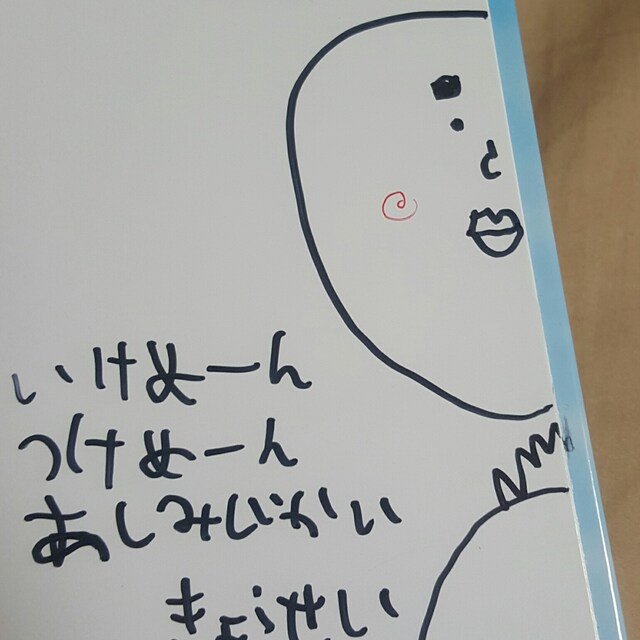 いけめーん
つけめーん
あしみじかい
きょうせい